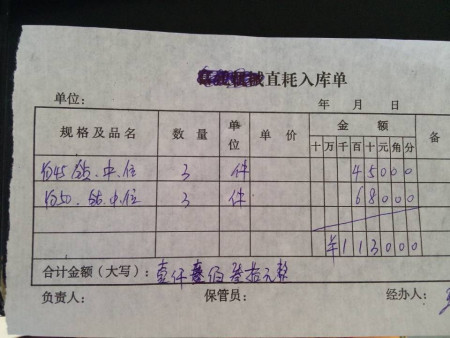 直耗入库单
单位: 年 月 日
规格及品名 数量 单位 单价 金额 备
十 万 千 百 十 元 角 分
3 件 4 5 0 0 0
3 件 6 8 0 0 0
¥ 1 1 3 0 0 0
合计金额(大写): 壹仟壹佰叁拾元整
负责人: 保管员: 经办人: